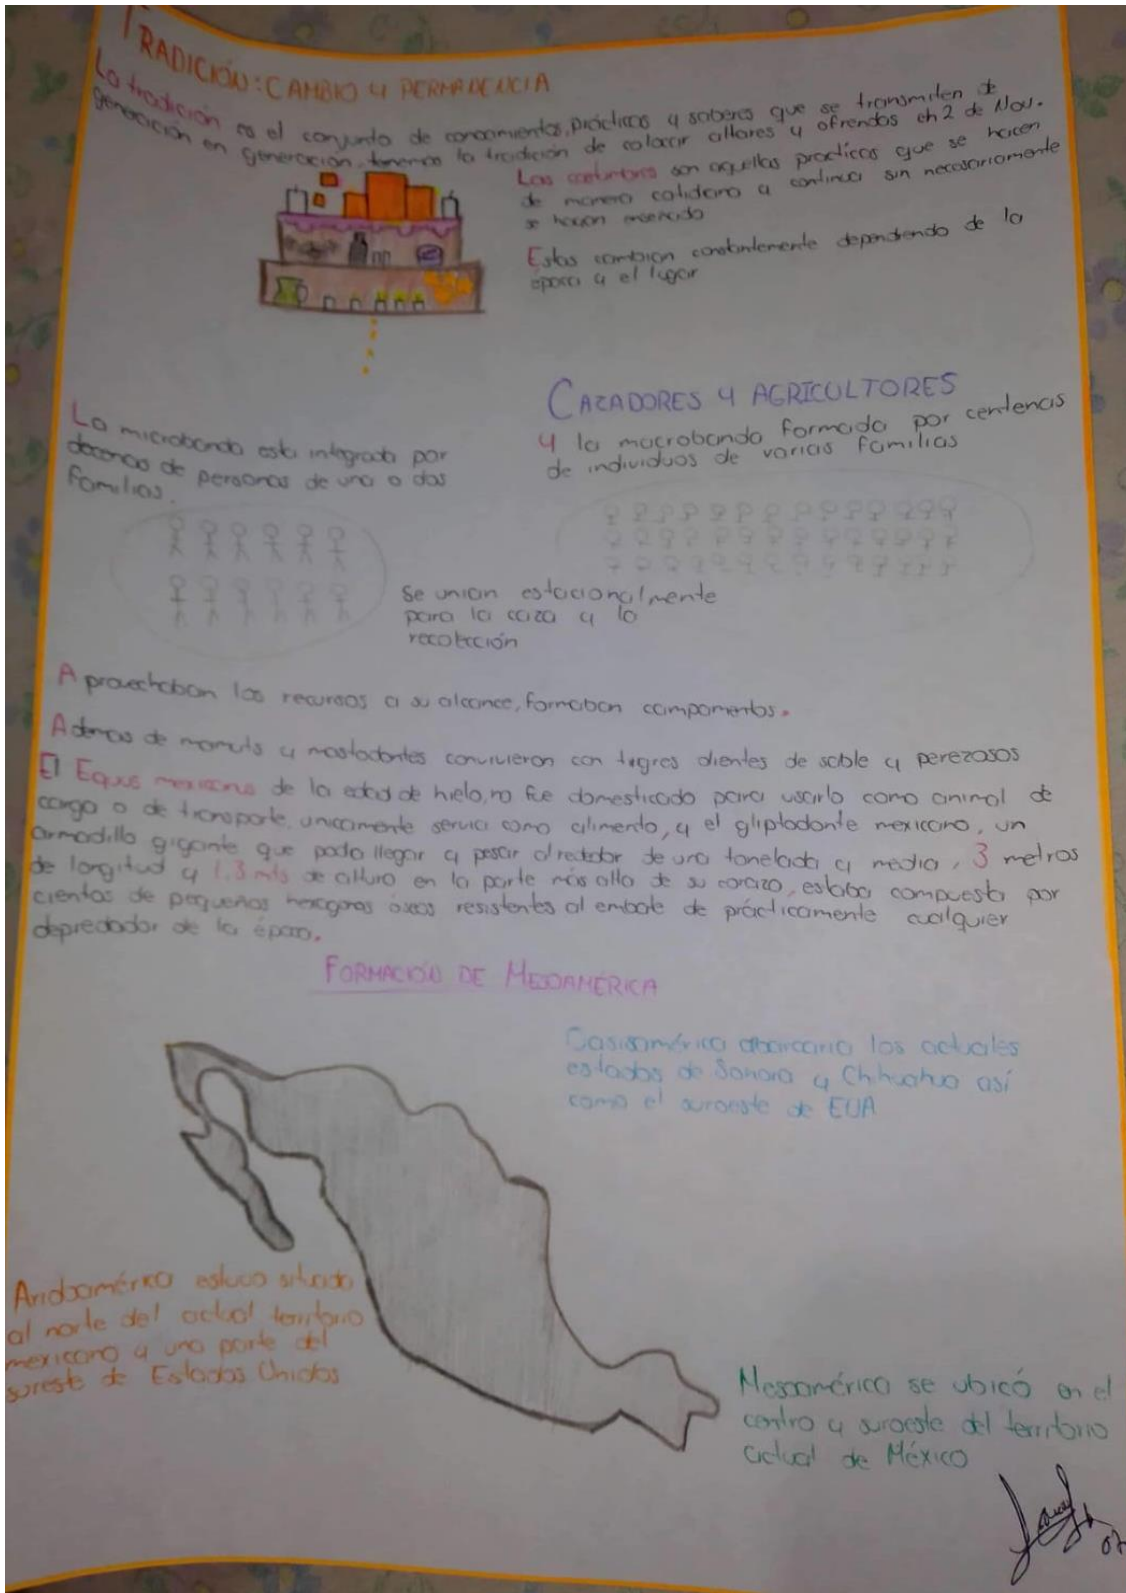 TRADICIÓN: CAMBIO Y PERMANENCIA
La tradición es el conjunto de conocimientos, prácticas y saberes que se transmiten de
generación en generación, tenemos la tradición de colocar altares y ofrendas eh 2 de Nov.
Las costumbres son aquellas practicas que se hacen
de manera cotidiana y continua sin necesariamente
se hayan
Estas cambian constantemente dependiendo de la
época y el lugar
CAZADORES Y AGRICULTORES
La microbanda esta integrada por
decenas de personas de una o dos
familias.
Y la macrobanda formada por centenas
de individuos de varias familias
Se unian estacionalmente
para la caza y la
recolección
Aprovechaban los recursos a su alcance, formaban campamentos.
Ademas de mamuts y mastodontes convivieron con tigres dientes de sable y perezosos
El Equus mexicano de la edad de hielo, no fue domesticado para usarlo como animal de
carga o de transporte, unicamente servia como alimento, y el gliptodonte mexicano, un
armadillo gigante que podo llegar a pesar alrededor de una tonelada y media, 3 metros
de longitud y 1.3 mts de altura en la parte más alta de su corazo, estaba compuesta por
cientos de pequeños hexagonos óseos resistentes al embate de prácticamente cualquier
depredador de la época.
FORMACIÓN DE MESOAMÉRICA
Oasisamérica abarcaria los actuales
estados de Sonora y Chihuahua así
como el suroeste de EUA
Aridoamérica estuvo situada
al norte del actual territorio
mexicano y una parte del
sureste de Estados Unidos
Mesoamérica se ubicó en el
centro y suroeste del territorio
actual de México